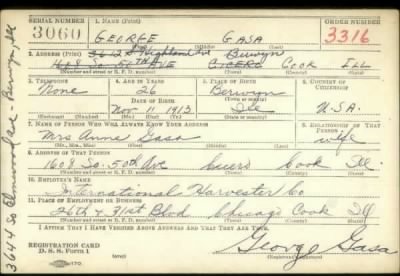 SERIAL NUMBER 1. NAME (Print) ORDER NUMBER
3060 GEORGE GASA 3316
3612 S. Highland Ave Berwyn
2. ADDRESS (Print)
1608 SO 50TH AVE CICERO COOK ILL
3. TELEPHONE 4. AGE IN YEARS 5. PLACE OF BIRTH 6. COUNTRY OF CITIZENSHIP
None 26 Berwyn
DATE OF BIRTH
Nov 11 1913 Ill U.S.A.
7. NAME OF PERSON WHO WILL ALWAYS KNOW YOUR ADDRESS 8. RELATIONSHIP OF THAT PERSON
Mrs Anna Gasa wife
(Mr., Mrs., Miss) (First) (Middle) (Last)
9. ADDRESS OF THAT PERSON
1608 So. 50th Ave Cicero Cook Ill.
(Number and street or R. F. D. number) (Town) (County) (State)
10. EMPLOYER'S NAME
International Harvester Co
11. PLACE OF EMPLOYMENT OR BUSINESS
26th & 31st Blvd Chicago Cook Ill
(Number and street or R. F. D. number) (Town) (County) (State)
I AFFIRM THAT I HAVE VERIFIED ABOVE ANSWERS AND THAT THEY ARE TRUE.
REGISTRATION CARD
D. S. S. Form 1
George Gasa
3644 So Elmwood Ave - Berwyn, Ill